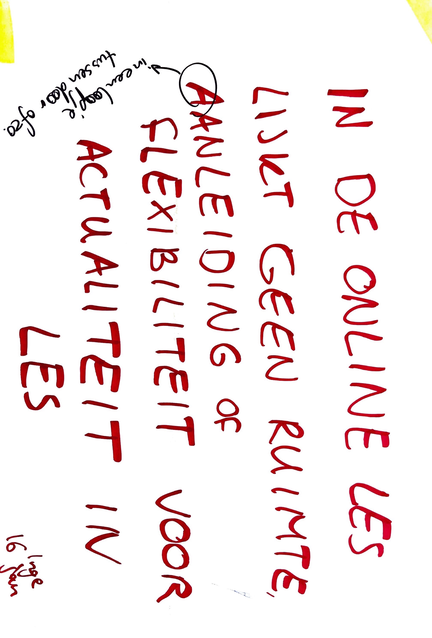 IN DE ONLINE LES
LIJKT GEEN RUIMTE,
AANLEIDING OF
FLEXIBILITEIT VOOR
ACTUALITEIT IN
LES
in een loopje
tussendoor ofzo.
Inge
16 jan